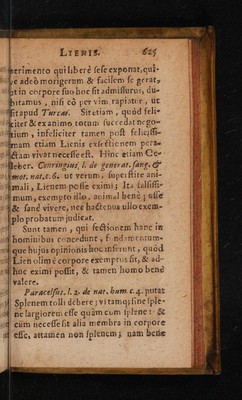 LIENIS. 625
terimento qui liberè sese exponat, qui-
ve adeò morigerum & facilem se gerat,
ut in corpore suo hoc sit admissurus, du-
bitamus, nisi cò per vim rapiatur, ut
fit apud Turcas. Sit etiam, quòd feli-
citer & ex animo totum succedat nego-
tium, infeliciter tamen post felicissi-
mam etiam Lienis exsectionem pera-
ctam vivat necesse est. Hinc etiam Ce-
leber. Conringius, l. de generat. sang. &
mot. nat. c. 6. ut verum, superstite ani-
mali, Lienem posse eximi; Ita falsissi-
mum, exempto illo, animal benè; esse
& sanè vivere, nec hactenus ullo exem-
plo probatum judicat.
Sunt tamen, qui sectionem hanc in
hominibus concedunt, fundamentum-
que hujus opinionis hoc inferunt, quòd
Lien olim è corpore exemptus sit, & ad-
huc eximi possit, & tamen homo benè
valere.
Paracelsus. l. 2. de nat. hum. c. 4. putat
Splenem tolli debere; vitamq; sine sple-
ne largiorem esse quàm cum splene: &
cùm necesse sit alia membra in corpore
esse, attamen non splenem; nam bene